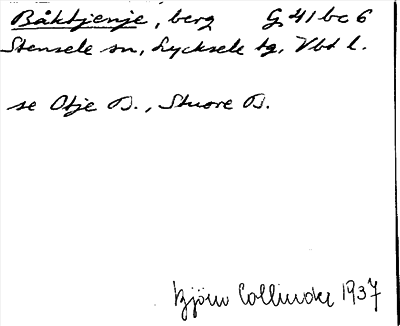 Båktjenje, berg G 41 bc 6
Stensele sn, Lycksele tg, Vbt l.
se Otje B., Stuore B.
Björn Collinder 1937